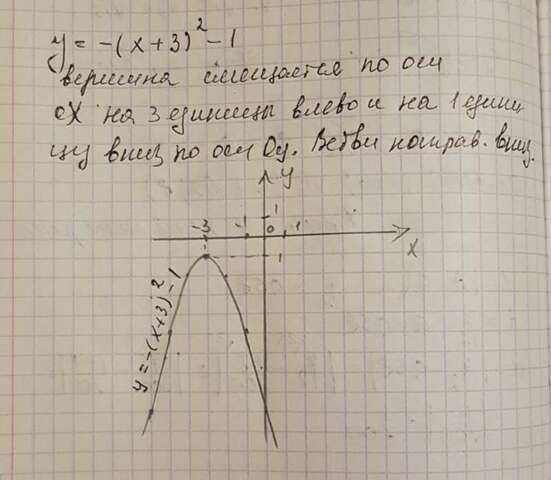 y = -(x+3)² - 1
вершина смещается по оси
oX на 3 единицы влево и на 1 едини
цу вниз по оси Oy. Ветви направ. вниз.
y
1
-3 -1 0 1
x
1
y = -(x+3)² - 1